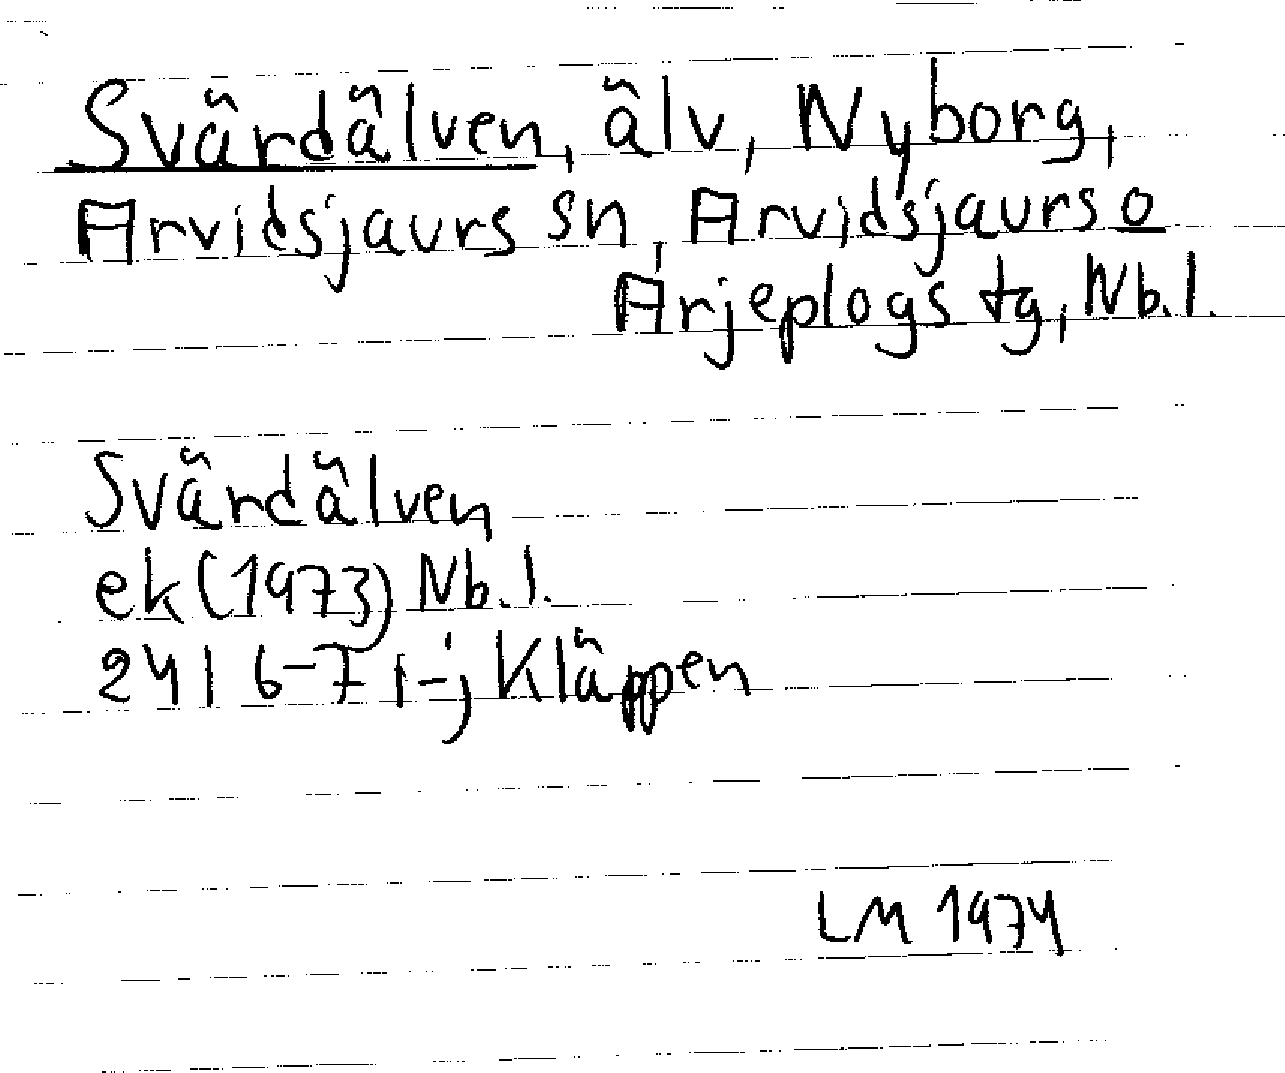 Svärdälven, älv, Nyborg,
Arvidsjaurs sn, Arvidsjaurs o
Arjeplogs tg, Nb. l.
Svärdälven
ek (1973) Nb. l.
24 I 6-7 i-j Kläppen
LM 1974